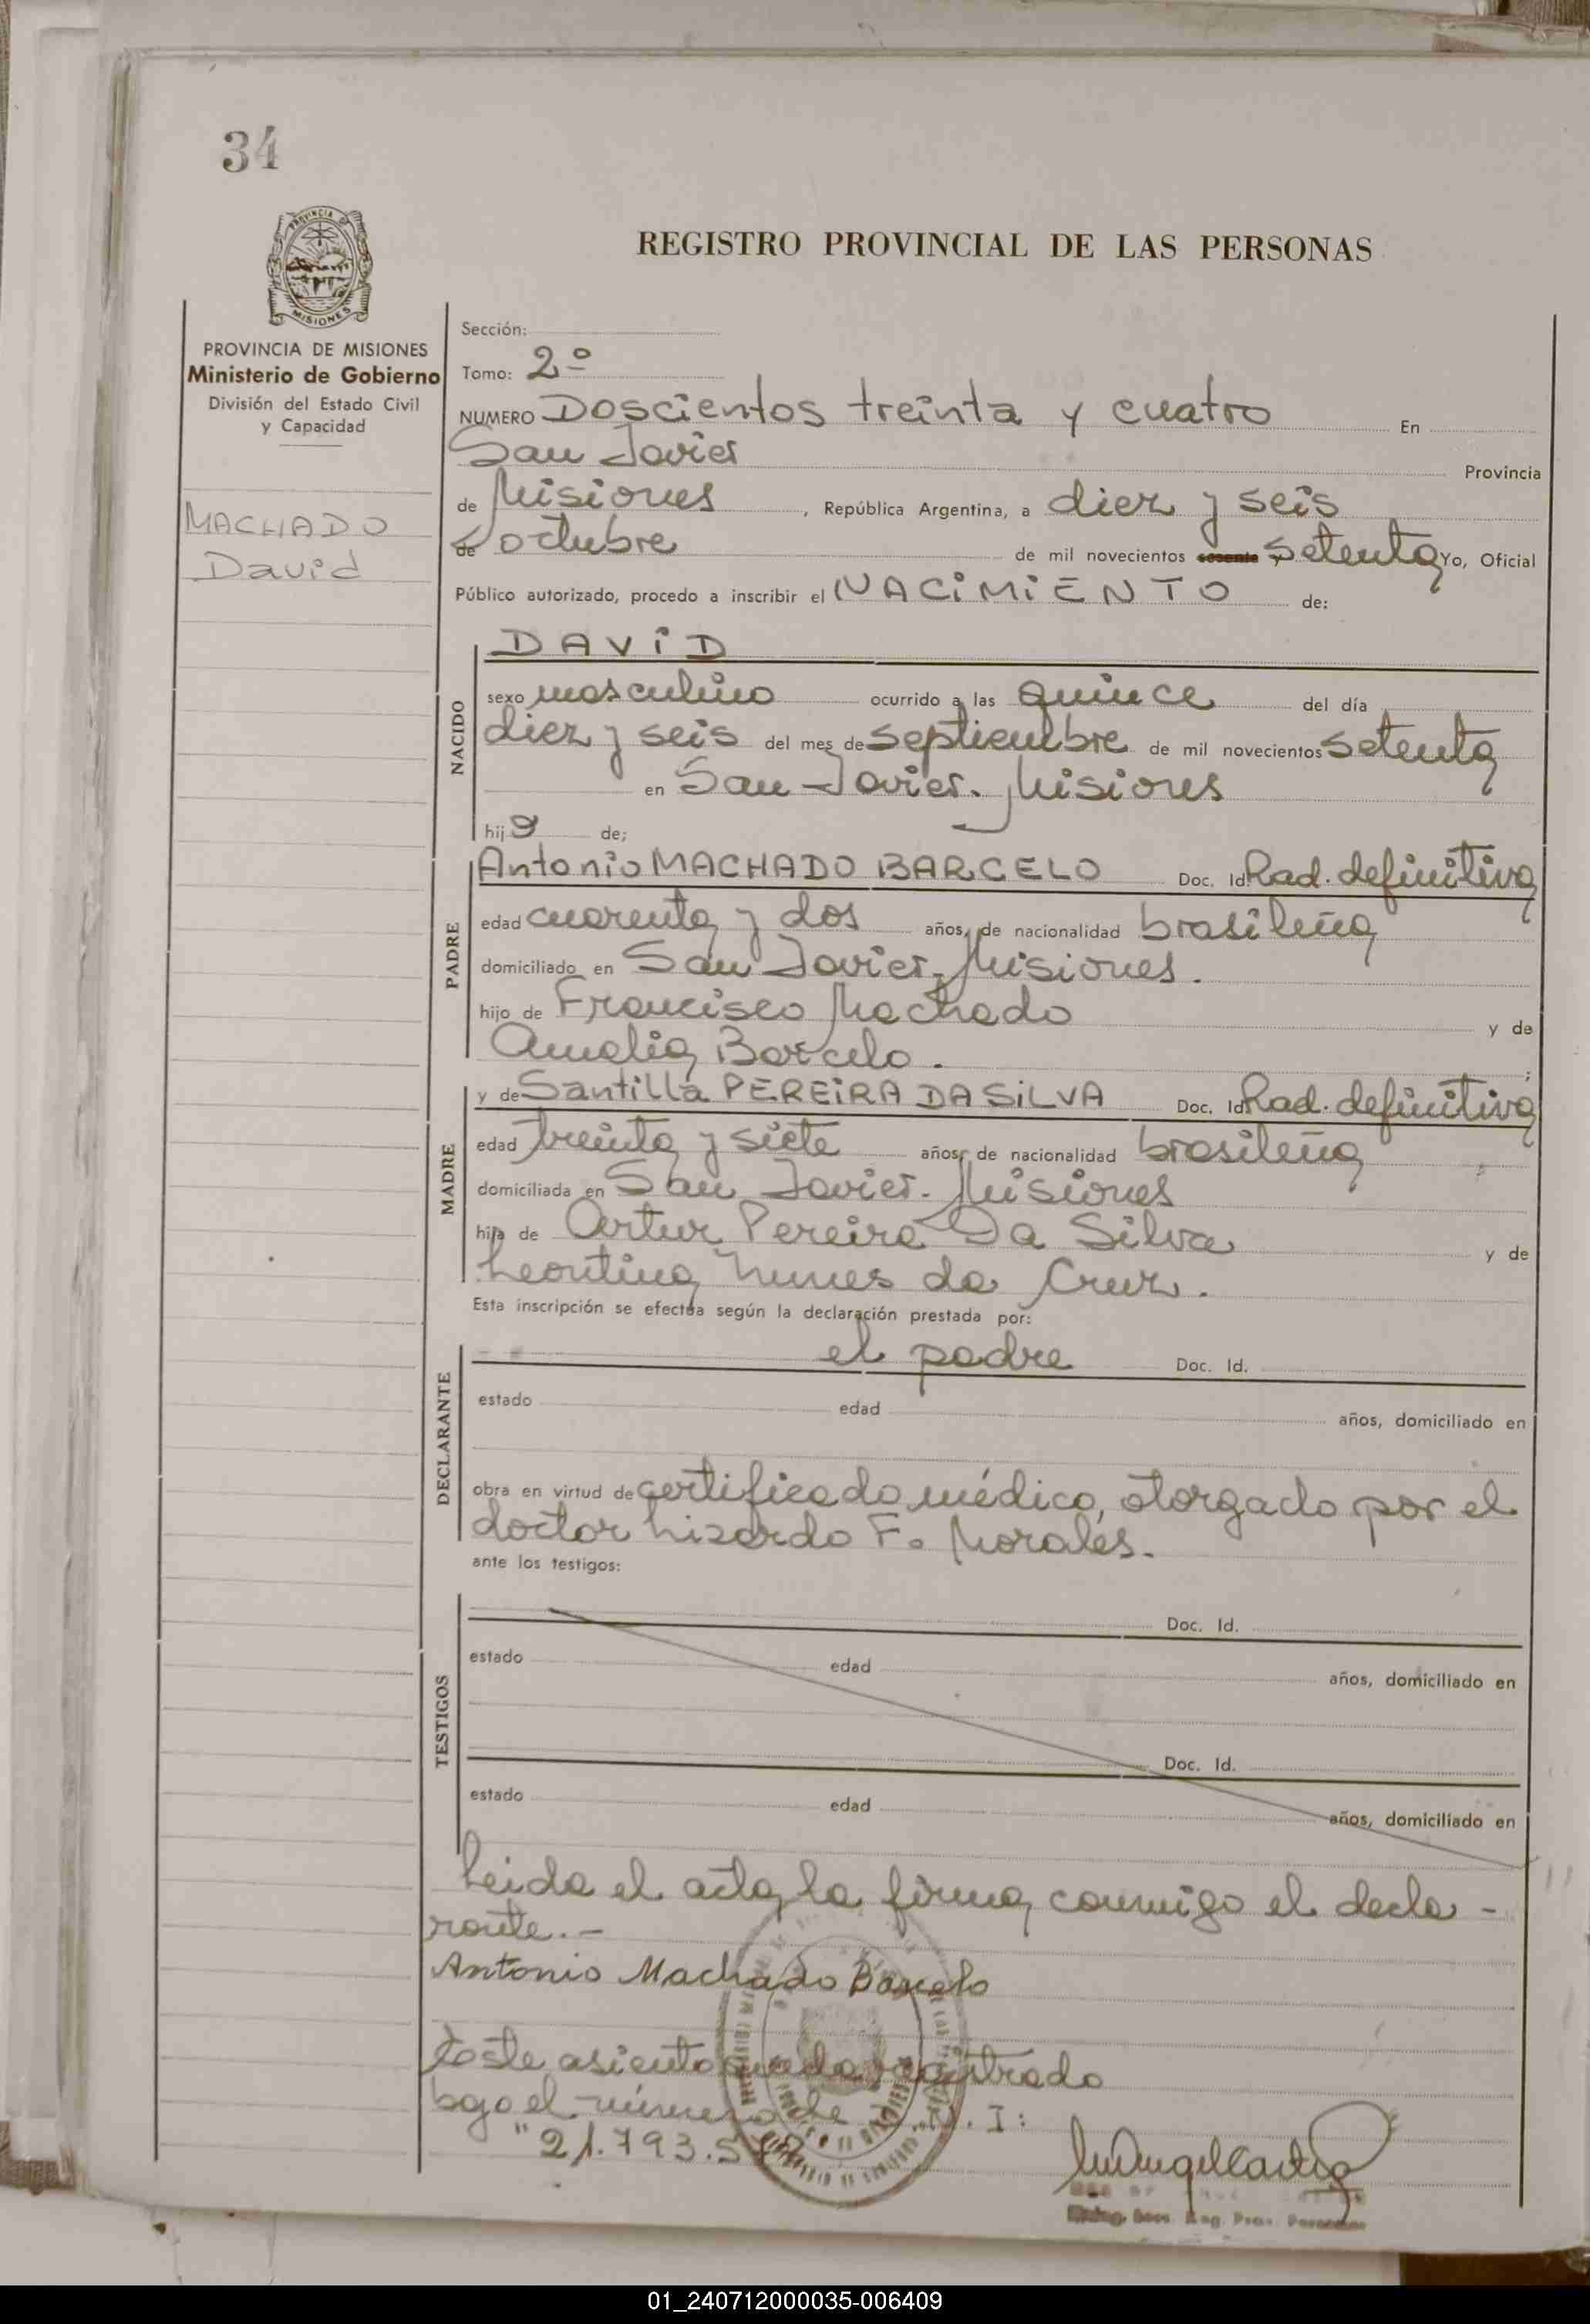 34
PROVINCIA DE MISIONES
REGISTRO PROVINCIAL DE LAS PERSONAS
PROVINCIA DE MISIONES
Ministerio de Gobierno
División del Estado Civil
y Capacidad
MACHADO
David
Sección:
Tomo: 2º
NUMERO Doscientos treinta y cuatro En
San Javier Provincia
de Misiones, República Argentina, a diez y seis
de octubre de mil novecientos sesenta setenta Yo, Oficial
Público autorizado, procedo a inscribir el NACIMIENTO de:
NACIDO
DAVID
sexo masculino ocurrido a las quince del día
diez y seis del mes de septiembre de mil novecientos setenta
en San Javier. Misiones
hijo de;
PADRE
Antonio MACHADO BARCELO Doc. Id Rad. definitiva
edad cuarenta y dos años, de nacionalidad brasileña
domiciliado en San Javier. Misiones.
hijo de Francisco Machado y de
Amalia Barcelo.;
MADRE
y de Santilla PEREIRA DA SILVA Doc. Id Rad. definitiva
edad treinta y siete años, de nacionalidad brasileña
domiciliada en San Javier. Misiones
hija de Artur Pereira Da Silva y de
Leontina Nunes da Cruz.
Esta inscripción se efectúa según la declaración prestada por:
DECLARANTE
el padre Doc. Id.
estado edad años, domiciliado en
obra en virtud de certificado médico, otorgado por el
doctor Lizardo F. Morales.
ante los testigos:
TESTIGOS
Doc. Id.
estado edad años, domiciliado en
Doc. Id.
estado edad años, domiciliado en
Leida el acta, la firma conmigo el decla-
rante.-
Antonio Machado Barcelo
Este asiento queda registrado
bajo el número de D.N.I:
"21.793.5
Reg. Prov. Personas
01_240712000035-006409